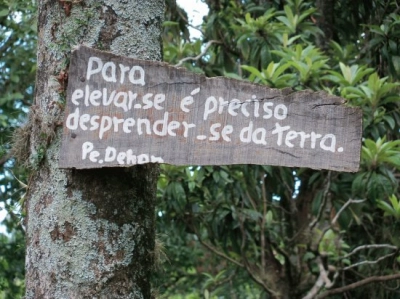 Para
elevar-se é preciso
desprender-se da terra.
Pe. Dehon